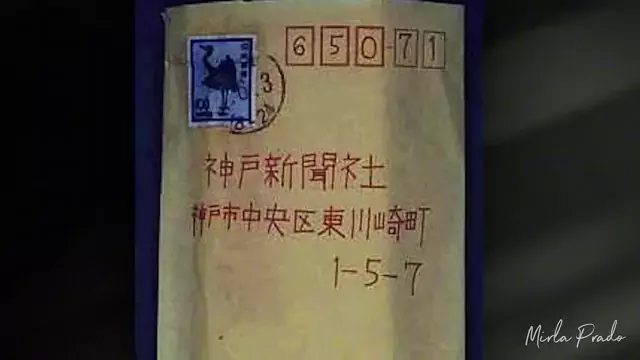 650-71
神戸新聞社
神戸市中央区東川崎町
1-5-7
Mirla Prado